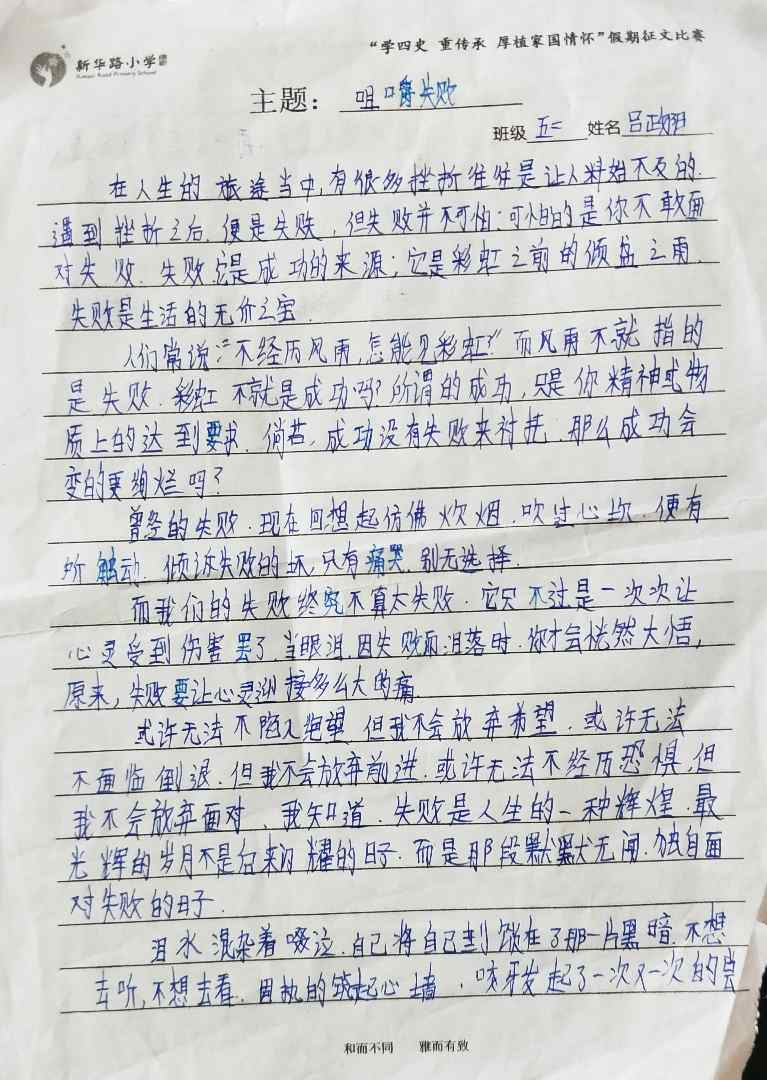 新华路小学
Xinhua Road Primary School
“学四史 重传承 厚植家国情怀”假期征文比赛
主题：咀嚼失败
班级 五二 姓名 吕政
在人生的旅途当中,有很多挫折往往是让人料始不及的.
遇到挫折之后.便是失败,但失败并不可怕;可怕的是你不敢面
对失败.失败,它是成功的来源;它是彩虹之前的倾盆之雨.
失败是生活的无价之宝.
人们常说:“不经历风雨,怎能见彩虹?”而风雨不就指的
是失败.彩虹不就是成功吗?所谓的成功,只是你精神或物
质上的达到要求.倘若,成功没有失败来衬托.那么成功会
变的更绚烂吗?
曾经的失败.现在回想起仿佛炊烟.吹过心坎.便有
所触动.倾诉失败的坏,只有痛哭.别无选择.
而我们的失败终究不算太失败.它只不过是一次次让
心灵受到伤害罢了.当眼泪.因失败而泪落时.你才会恍然大悟,
原来,失败要让心灵迎接多么大的痛.
或许无法不陷入绝望.但我不会放弃希望.或许无法
不面临倒退.但我不会放弃前进.或许无法不经历恐惧,但
我不会放弃面对、我知道.失败是人生的一种辉煌.最
光辉的岁月不是后来闪耀的日子.而是那段默默无闻.独自面
对失败的日子.
泪水混杂着啜泣.自己将自己封锁在了那一片黑暗.不想
去听,不想去看.固执的筑起心墙.咬牙发起了一次又一次的尝
和而不同 雅而有致